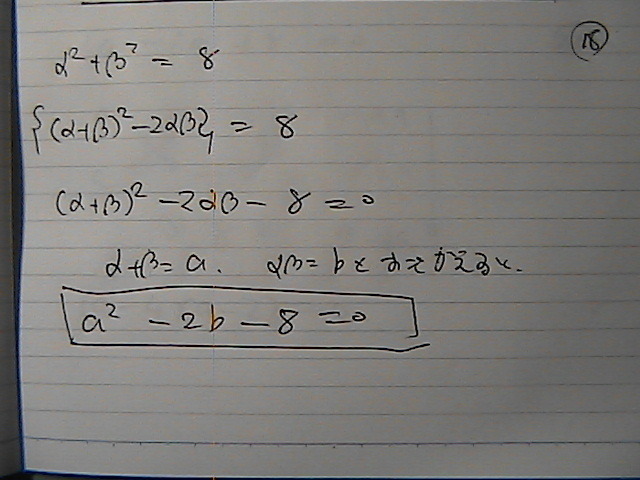 18
α² + β² = 8
{(α+β)² - 2αβ} = 8
(α+β)² - 2αβ - 8 = 0
α+β = a. αβ = b と
a² - 2b - 8 = 0